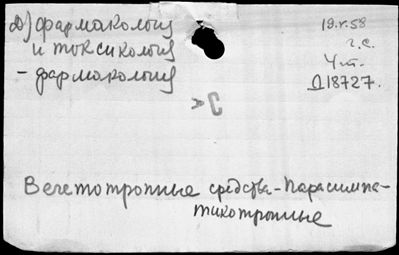 д) фармакология
и токсикология
- фармакология
19.V.58
г.с.
Ч.т.
Д18727.
Вегетотропные средства - Парасимпа-
тикотропные